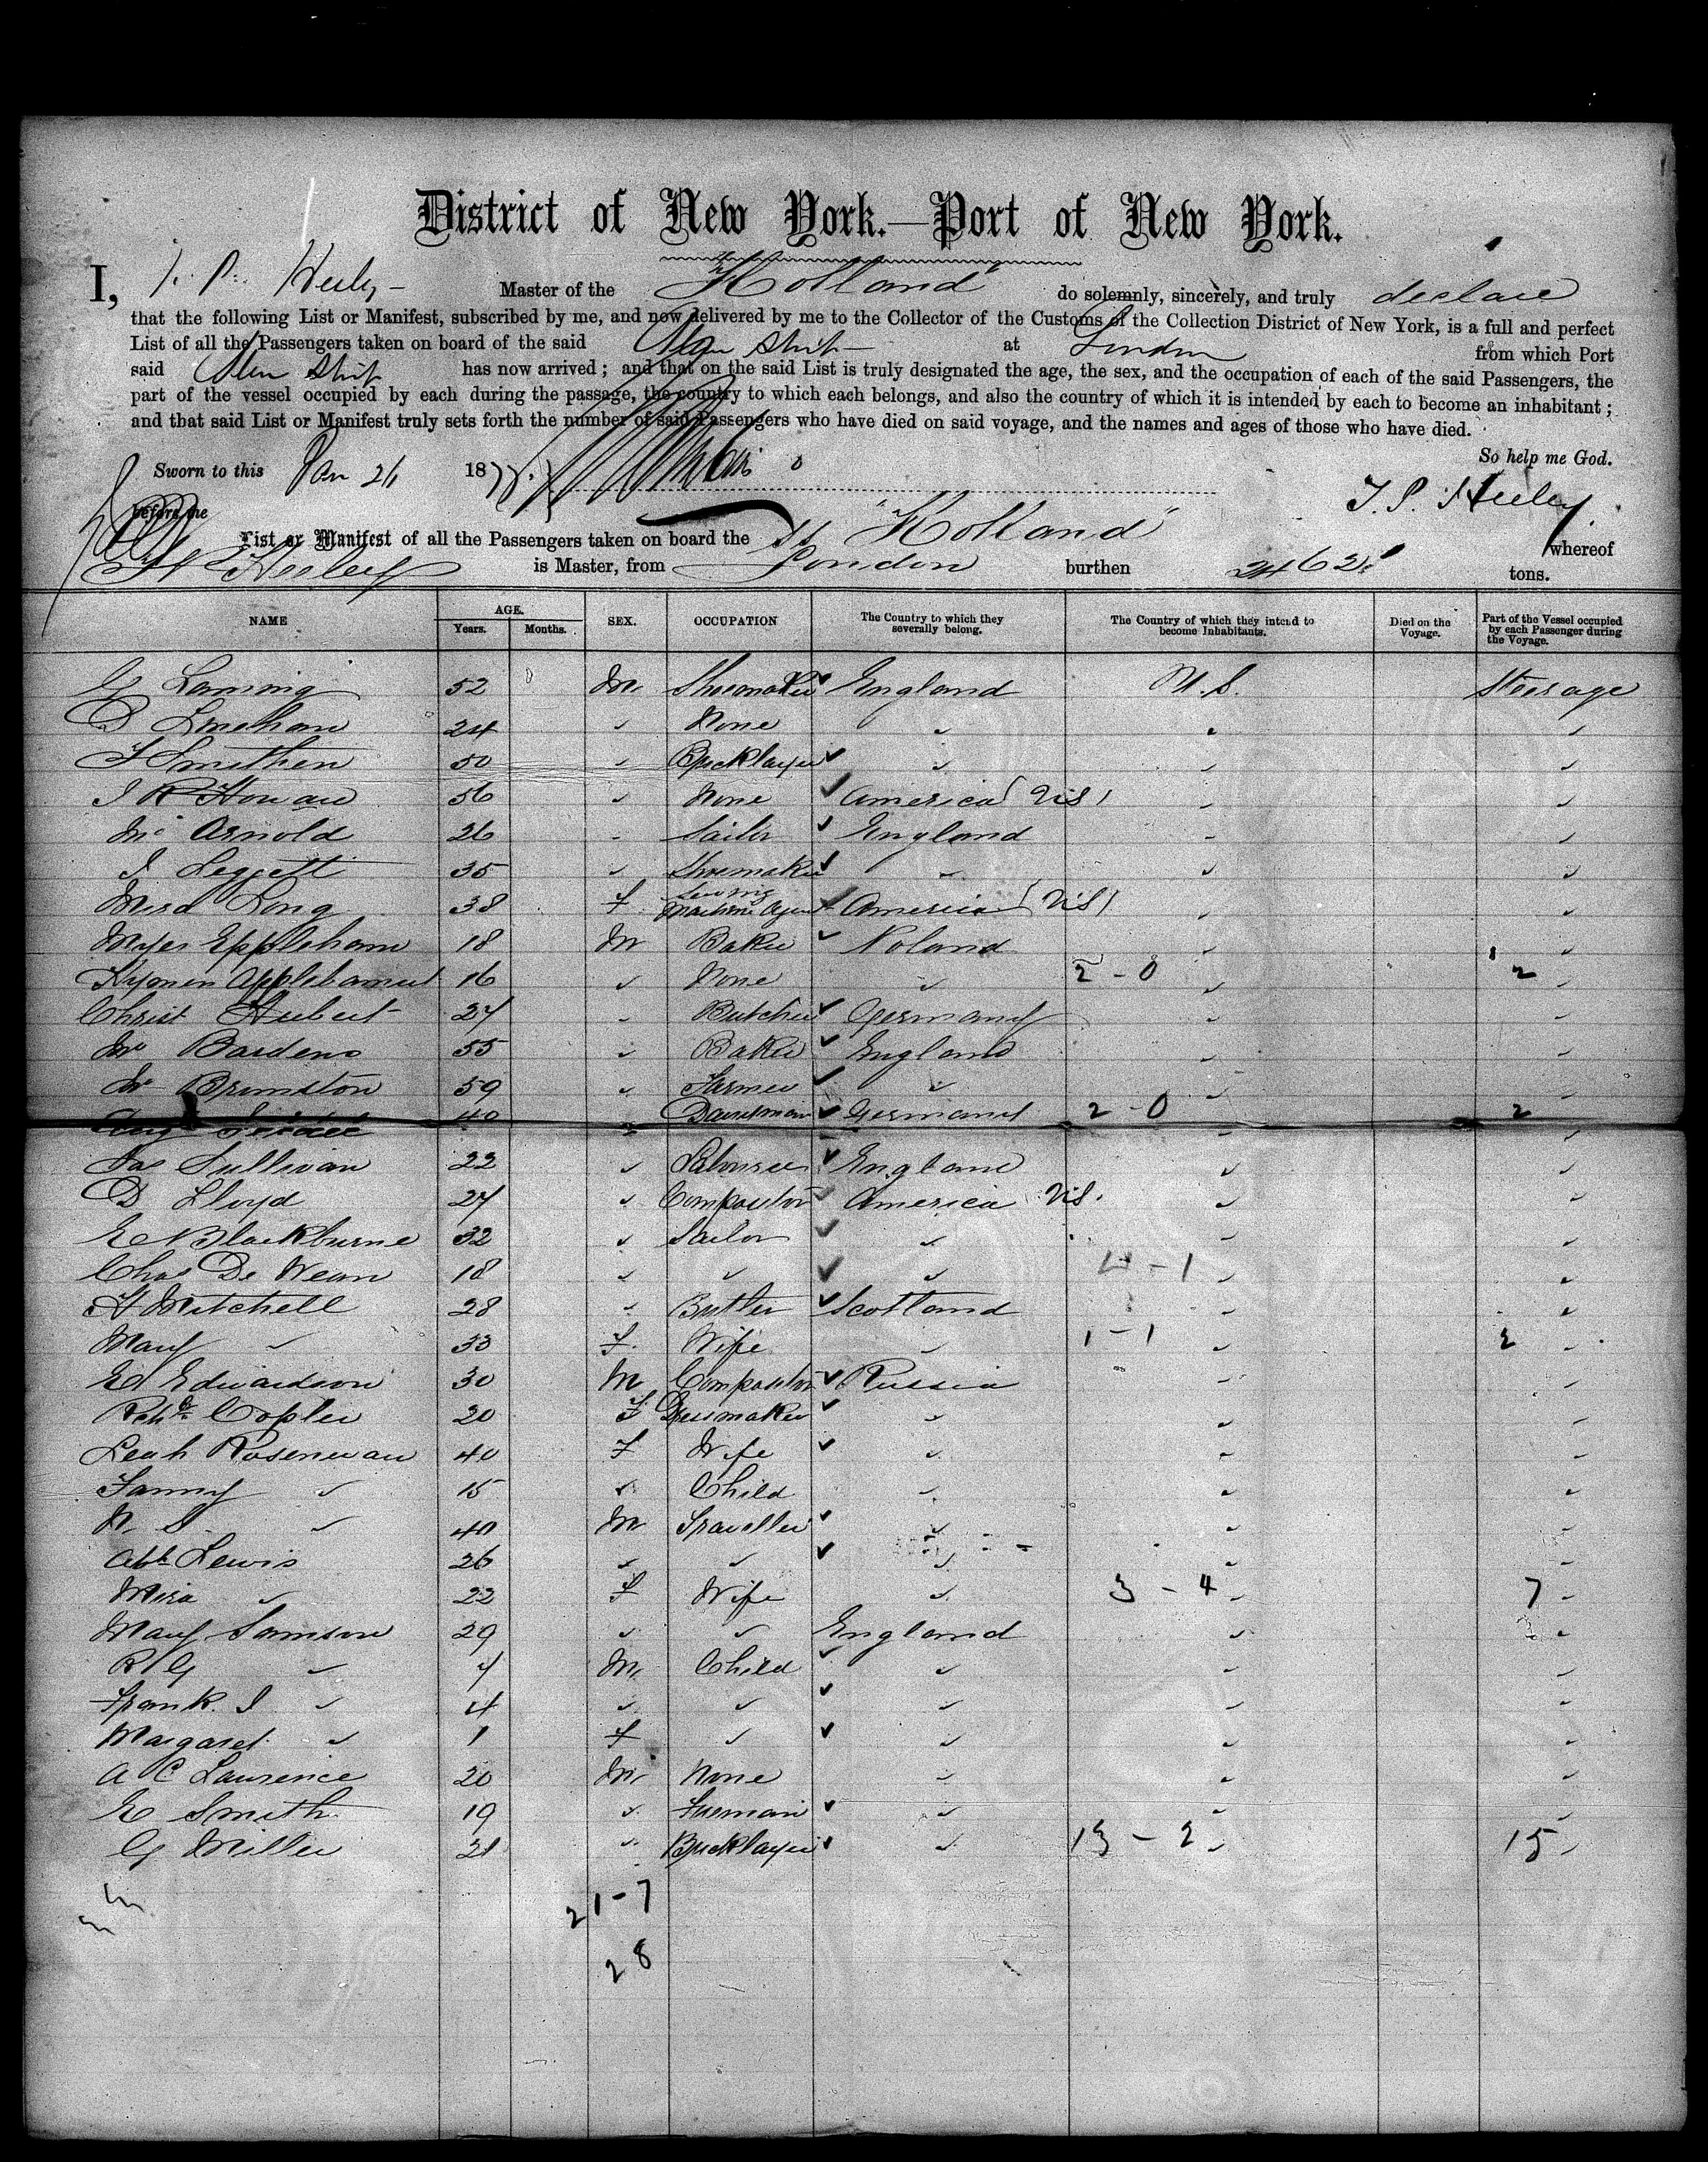 District of New York.—Port of New York.
I, Master of the "Holland" do solemnly, sincerely, and truly declare
that the following List or Manifest, subscribed by me, and now delivered by me to the Collector of the Customs of the Collection District of New York, is a full and perfect
List of all the Passengers taken on board of the said at London from which Port
said has now arrived; and that on the said List is truly designated the age, the sex, and the occupation of each of the said Passengers, the
part of the vessel occupied by each during the passage, the country to which each belongs, and also the country of which it is intended by each to become an inhabitant;
and that said List or Manifest truly sets forth the number of said Passengers who have died on said voyage, and the names and ages of those who have died.
So help me God.
Sworn to this Jan 26 18
before me
List or Manifest of all the Passengers taken on board the SS "Holland" whereof
is Master, from London burthen tons.
NAME AGE. Years. Months. SEX. OCCUPATION The Country to which they severally belong. The Country of which they intend to become Inhabitants. Died on the Voyage. Part of the Vessel occupied by each Passenger during the Voyage.
G Laming 52 M Shoemaker England U.S. Steerage
D 24 None
50 Bricklayer
56 None America
Arnold 26 England
J Leggett 35 Shoemaker
Long 38 F Sewing Machine Agent America
18 M Baker Poland
16 None 2-0 2
Christ Hubert 27 Butcher Germany
55 Baker England
Brimston 59 Farmer
40 Germany 2-0 2
Jas Sullivan 22 Labourer England
D Lloyd 27 Compositor America
E Blackburne 32 Sailor
Chas De 18
H Mitchell 28 Butler Scotland
Mary 33 F Wife 1-1 2
Ed Edwardson 30 M Compositor Russia
20 F Dressmaker
Leah 40 F Wife
Fanny 15 Child
40 M Traveller
Lewis 26
22 F Wife 3-4 7
Mary Samson 29 England
R G 7 M Child
Frank J 4
Margaret 1 F
A C Lawrence 20 M None
E Smith 19 Fireman
G Miller 21 Bricklayer 13-2 15
21-7
28